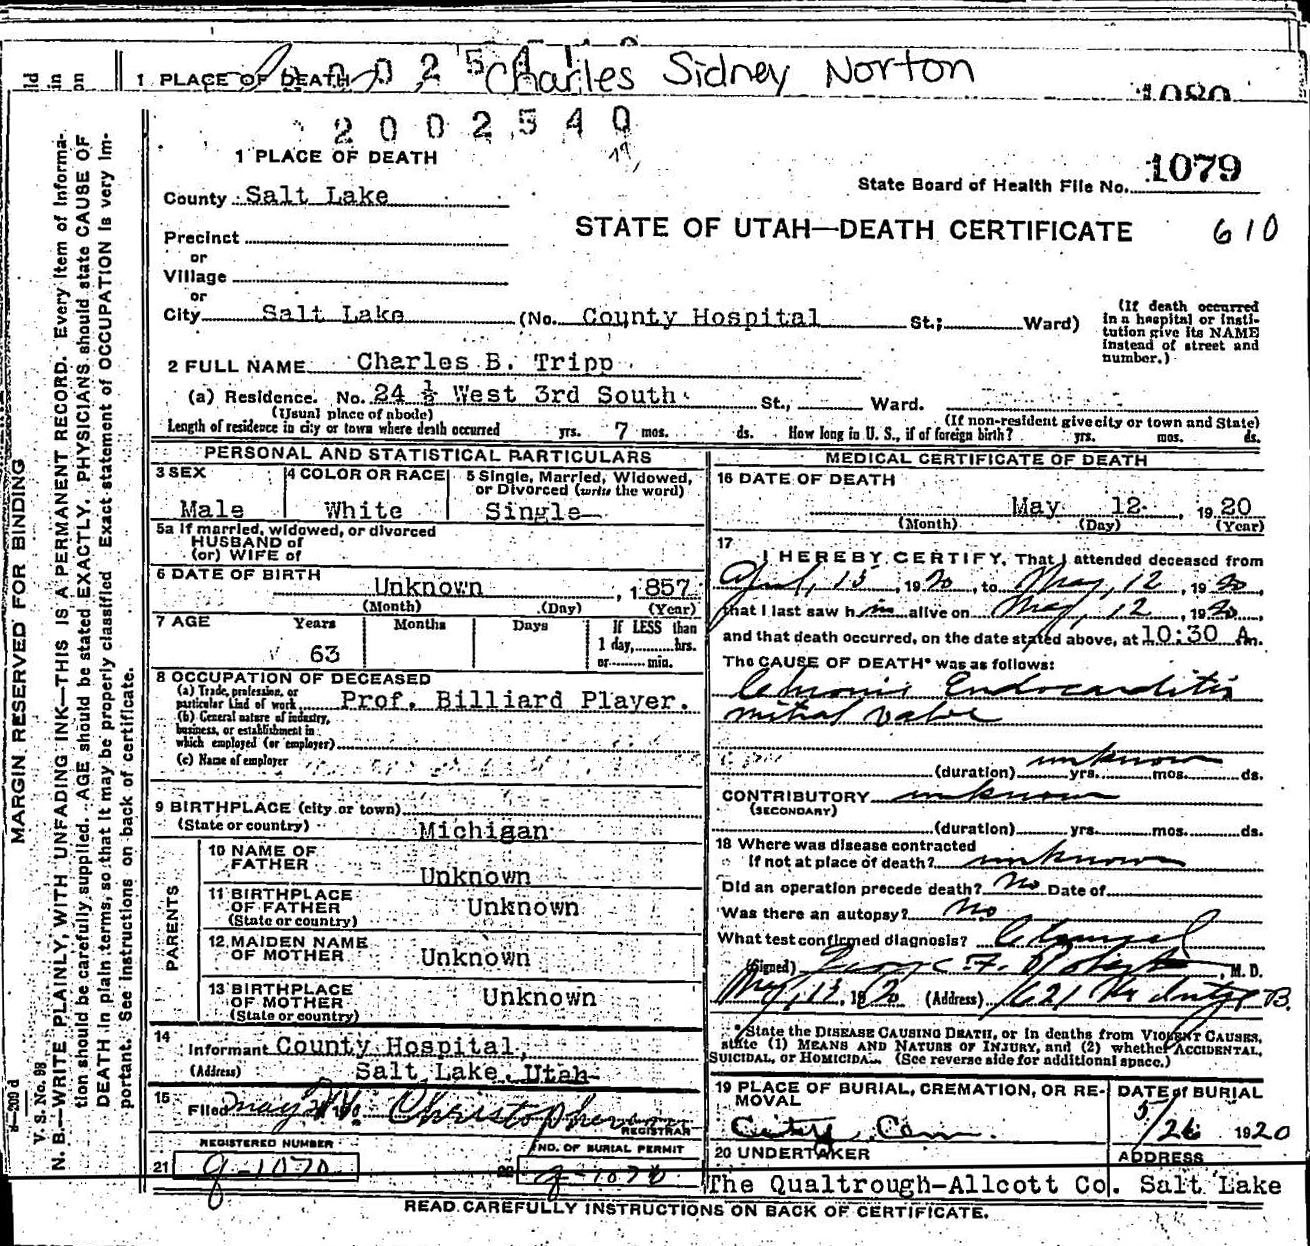 1 PLACE OF DEATH
Charles Sidney Norton
1080
2002540
1 PLACE OF DEATH
State Board of Health File No. 1079
County Salt Lake
STATE OF UTAH—DEATH CERTIFICATE 610
Precinct
or
Village
or
City Salt Lake (No. County Hospital St.; Ward)
(If death occurred in a hospital or institution give its NAME instead of street and number.)
2 FULL NAME Charles B. Tripp
(a) Residence. No. 24 ½ West 3rd South St., Ward.
(Usual place of abode) (If non-resident give city or town and State)
Length of residence in city or town where death occurred yrs. 7 mos. ds. How long in U. S., if of foreign birth? yrs. mos. ds.
PERSONAL AND STATISTICAL PARTICULARS
3 SEX
Male
4 COLOR OR RACE
White
5 Single, Married, Widowed, or Divorced (write the word)
Single
5a If married, widowed, or divorced
HUSBAND of
(or) WIFE of
6 DATE OF BIRTH
Unknown , 1857
(Month) (Day) (Year)
7 AGE Years Months Days If LESS than
1 day, hrs.
or min.
63
8 OCCUPATION OF DECEASED
(a) Trade, profession, or particular kind of work Prof. Billiard Player.
(b) General nature of industry, business, or establishment in which employed (or employer)
(c) Name of employer
9 BIRTHPLACE (city or town)
(State or country) Michigan
PARENTS
10 NAME OF FATHER Unknown
11 BIRTHPLACE OF FATHER (State or country) Unknown
12 MAIDEN NAME OF MOTHER Unknown
13 BIRTHPLACE OF MOTHER (State or country) Unknown
14 Informant County Hospital,
(Address) Salt Lake, Utah
15 Filed May Christopherson
REGISTRAR
REGISTERED NUMBER
21
NO. OF BURIAL PERMIT
MEDICAL CERTIFICATE OF DEATH
16 DATE OF DEATH
May 12 , 1920
(Month) (Day) (Year)
17 I HEREBY CERTIFY, That I attended deceased from
April, 13 1920, to May, 12, 1920,
that I last saw him alive on May, 12, 1920,
and that death occurred, on the date stated above, at 10:30 A m.
The CAUSE OF DEATH* was as follows:
Chronic Endocarditis
mitral valve
unknown
(duration) yrs. mos. ds.
CONTRIBUTORY unknown
(SECONDARY)
(duration) yrs. mos. ds.
18 Where was disease contracted
If not at place of death? unknown
Did an operation precede death? No Date of
Was there an autopsy? No
What test confirmed diagnosis?
(Signed) George F. , M. D.
May, 13, 1920 (Address) 621
*State the DISEASE CAUSING DEATH, or in deaths from VIOLENT CAUSES, state (1) MEANS AND NATURE OF INJURY, and (2) whether ACCIDENTAL, SUICIDAL, or HOMICIDAL. (See reverse side for additional space.)
19 PLACE OF BURIAL, CREMATION, OR REMOVAL
City Cem.
DATE of BURIAL
5/26 1920
20 UNDERTAKER
ADDRESS
The Qualtrough-Allcott Co. Salt Lake
READ CAREFULLY INSTRUCTIONS ON BACK OF CERTIFICATE.
MARGIN RESERVED FOR BINDING
V. S. No. 98
N. B.—WRITE PLAINLY, WITH UNFADING INK—THIS IS A PERMANENT RECORD. Every Item of Information should be carefully supplied. AGE should be stated EXACTLY. PHYSICIANS should state CAUSE OF DEATH in plain terms, so that it may be properly classified. Exact statement of OCCUPATION is very Important. See instructions on back of certificate.